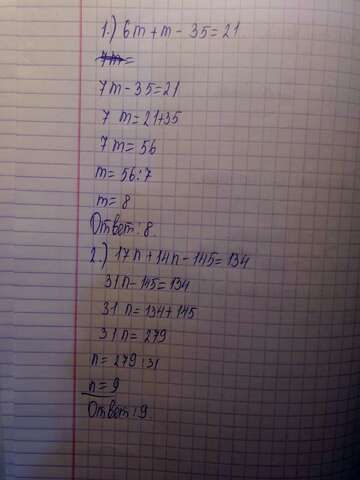 1.) 6m + m - 35 = 21
7m =
7m - 35 = 21
7 m = 21+35
7 m = 56
m = 56:7
m = 8
Ответ: 8.
2.) 17n + 14n - 145 = 134
31n - 145 = 134
31 n = 134 + 145
31 n = 279
n = 279 : 31
n = 9
Ответ: 9.